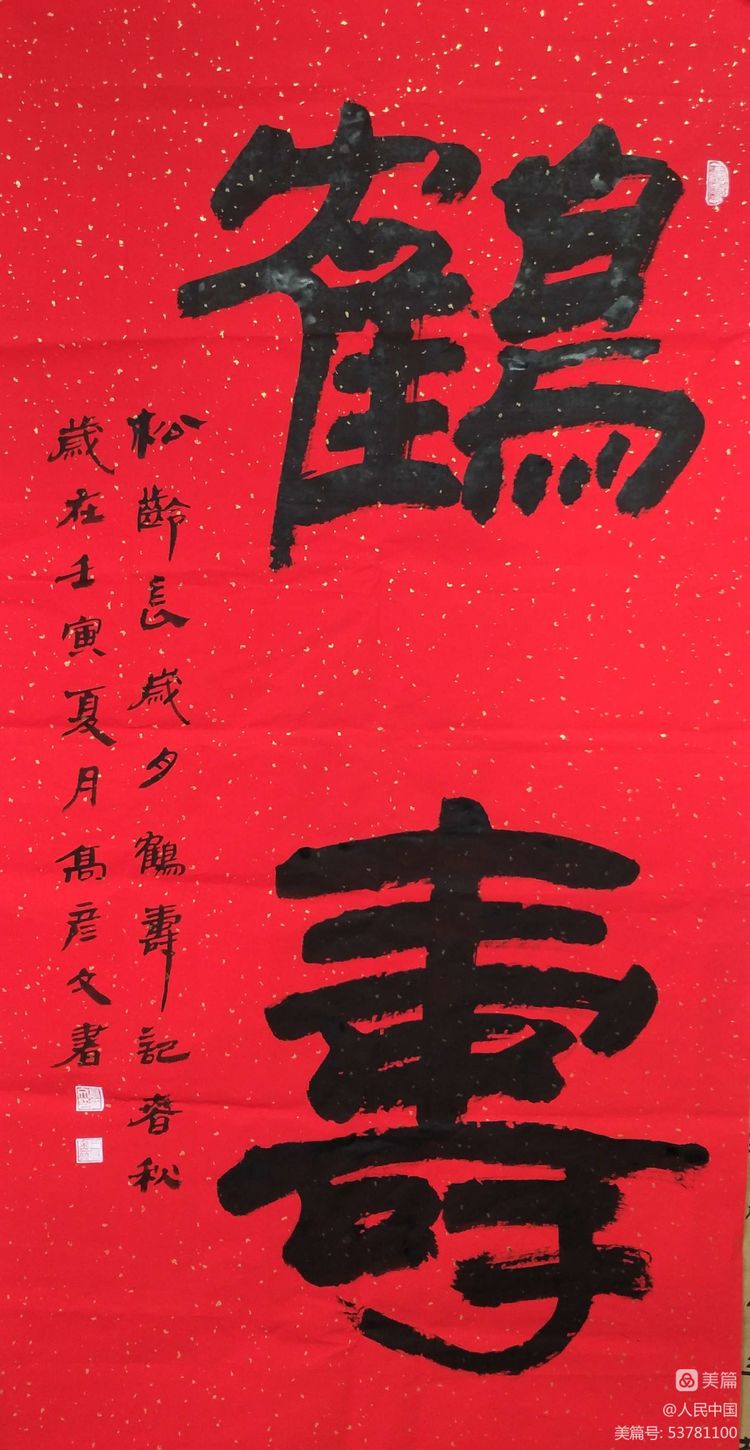 鶴壽
松齡長歲夕鶴壽記春秋
歲在壬寅夏月高彦文書
美篇
@人民中国
美篇号: 53781100